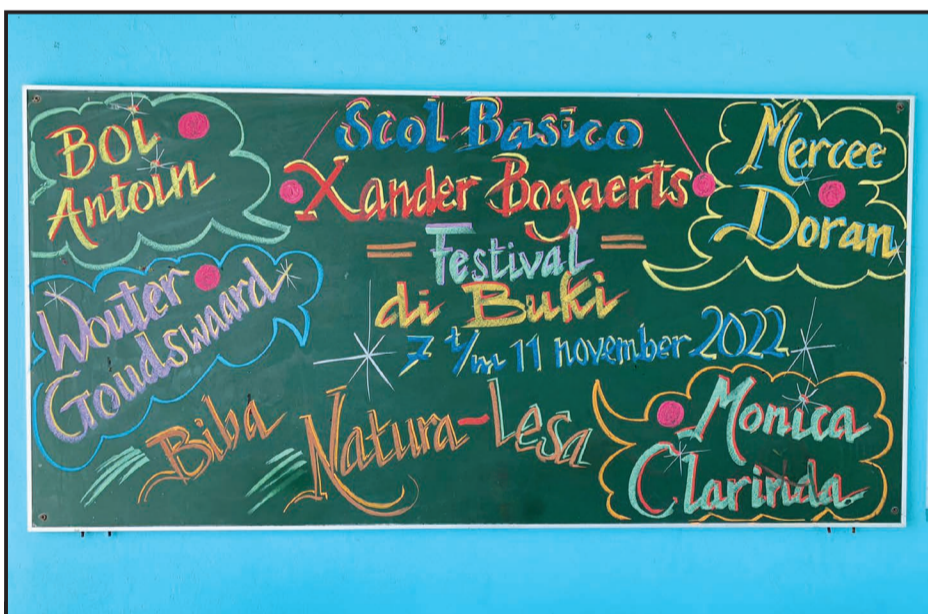 Bol
Antoin
Scol Basico
Xander Bogaerts
Festival
di Buki
7 t/m 11 november 2022
Mercee
Doran
Wouter
Goudswaard
Biba Natura-Lesa
Monica
Clarinda